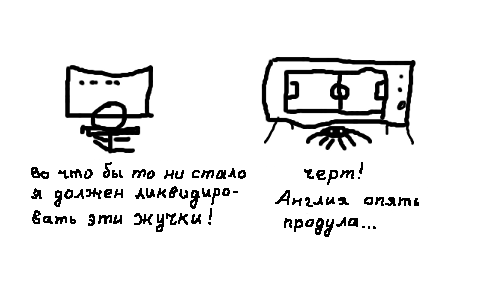 Во что бы то ни стало
я должен ликвидиро-
вать эти жучки!
черт!
Англия опять
продула...